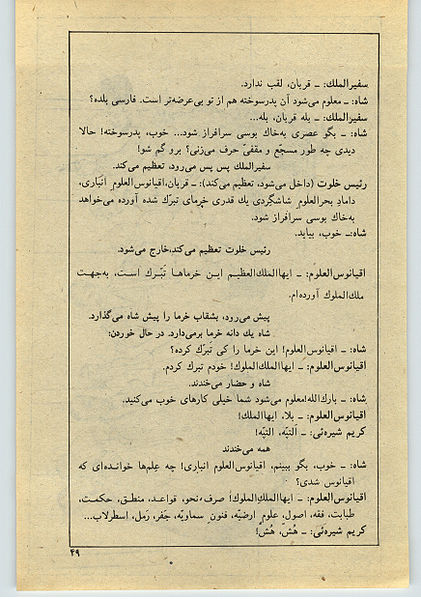 سفیرالملك: ـ قربان، لقب ندارد.
شاه: ـ معلوم می‌شود آن پدرسوخته هم از تو بی‌عرضه‌تر است. فارسی بلده؟
سفیرالملك: ـ بله قربان، بله...
شاه: ـ بگو عصری به‌خاك بوسی سرافراز شود... خوب، پدرسوخته! حالا
دیدی چه طور مسجّع و مقفیّ حرف می‌زنی؟ برو گم شو!
سفیرالملك پس پس می‌رود، تعظیم می‌کند.
رئیس خلوت (داخل می‌شود، تعظیم می‌کند): ـ قربان، اقیانوس‌العلوم انباری،
داماد بحرالعلوم شاشگردی یك قدری خرمای تبرّك شده آورده می‌خواهد
به‌خاك بوسی سرافراز شود.
شاه: ـ خوب، بیاید.
رئیس خلوت تعظیم می‌کند، خارج می‌شود.
اقیانوس‌العلوم: ـ ایهاالملك‌العظیم این خرماها تبّرك است، به‌جهت
ملك‌الملوك آورده‌ام.
پیش می‌رود، بشقاب خرما را پیش شاه می‌گذارد.
شاه یك دانه خرما برمی‌دارد. در حال خوردن:
شاه: ـ اقیانوس‌العلوم! این خرما را کی تبرّك کرده؟
اقیانوس‌العلوم: ـ ایهاالملك‌الملوك! خودم تبرك کردم.
شاه و حضار می‌خندند.
شاه: ـ بارك‌الله! معلوم می‌شود شما خیلی کارهای خوب می‌کنید.
اقیانوس‌العلوم: ـ بلا، ایهاالملك!
کریم شیره‌ئی: ـ اَلتپّه، التپّه!
همه می‌خندند
شاه: ـ خوب، بگو ببینم، اقیانوس‌العلوم انباری! چه عِلم‌ها خوانده‌ای که
اقیانوس شدی؟
اقیانوس‌العلوم: ـ ایهاالملك‌الملوك! صرف، نحو، قواعد، منطق، حکمت،
طبابت، فقه، اصول، علومِ ارضیّه، فنونِ سماویّه، جَفر، رَمل، اسطرلاب...
کریم شیره‌ئی: ـ هُش، هُش!
۴۹